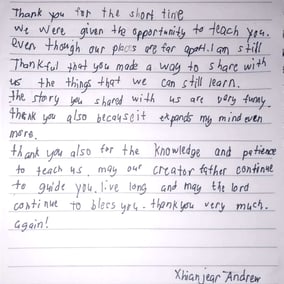 Thank you for the short time
we were given the opportunity to teach you.
even though our places are far apart. I am still
Thankful that you made a way to share with
us the things that we can still learn.
the story you shared with us are very funny.
thank you also because it expands my mind even
more.
thank you also for the knowledge and patience
to teach us. may our creator father continue
to guide you. live long and may the lord
continue to bless you. thank you very much.
again!
Xhianjear Andrew